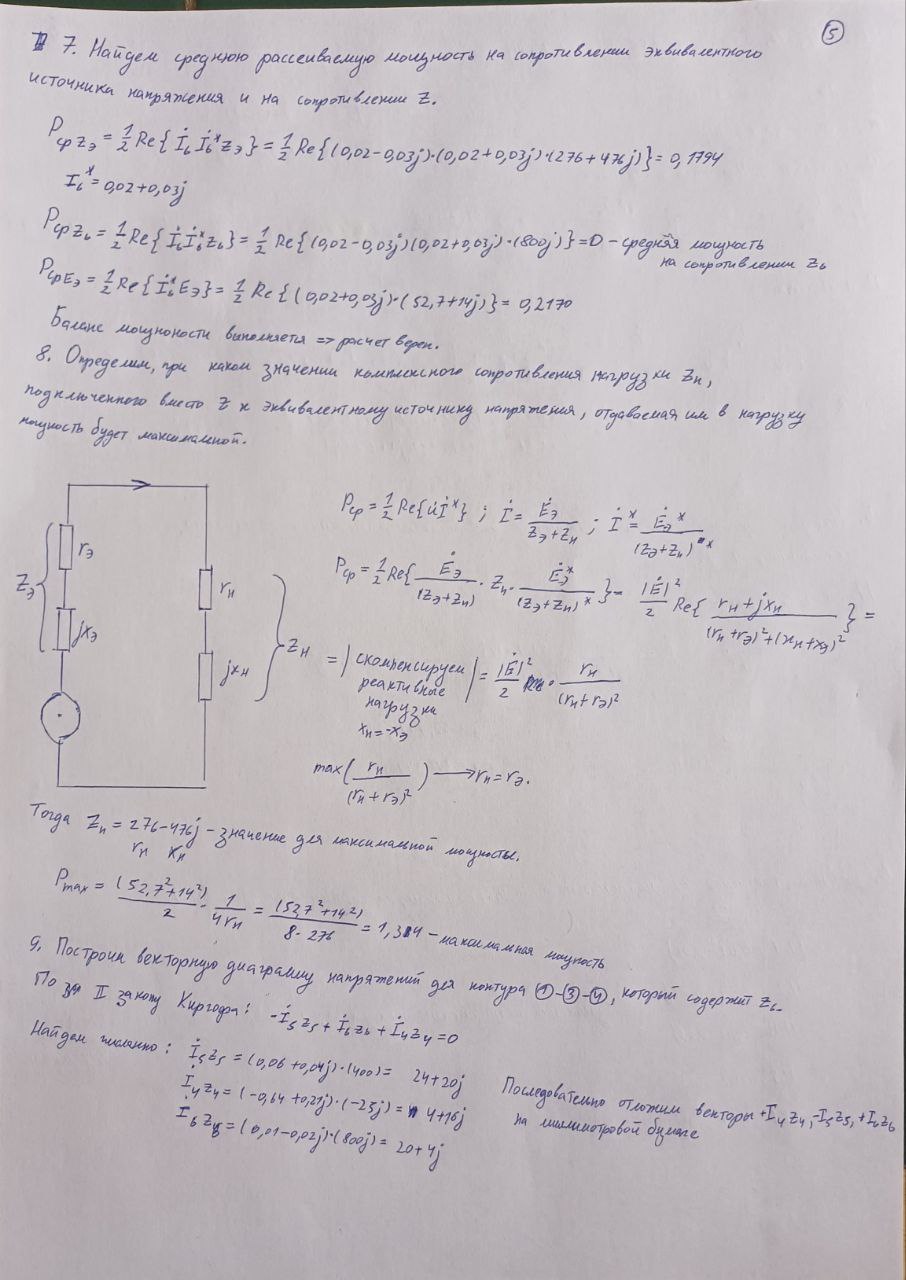 5
7. Найдем среднюю рассеиваемую мощность на сопротивлении эквивалентного
источника напряжения и на сопротивлении Z.
P_{ср Zэ} = 1/2 Re{İ₆ İ₆* Zэ} = 1/2 Re{(0,02-0,03j)·(0,02+0,03j)·(276+476j)} = 0,1794
I₆* = 0,02+0,03j
P_{ср Z₆} = 1/2 Re{İ₆ İ₆* Z₆} = 1/2 Re{(0,02-0,03j)(0,02+0,03j)·(800j)} = 0 - средняя мощность
на сопротивлении Z₆
P_{ср Eэ} = 1/2 Re{İ₆* Eэ} = 1/2 Re{(0,02+0,03j)·(52,7+14j)} = 0,2170
Баланс мощноности выполняется => расчет верен.
8. Определим, при каком значении комплексного сопротивления нагрузки Zн,
подключенного вместо Z к эквивалентному источнику напряжения, отдаваемая им в нагрузку
мощность будет максимальной.
Zэ
rэ
jxэ
rн
jxн
Zн
Pср = 1/2 Re{u̇İ*} ; İ = Ėэ/(Zэ+Zн) ; İ* = Ėэ*/(Zэ+Zн)*
Pср = 1/2 Re{Ėэ/(Zэ+Zн) · Zн · Ėэ*/(Zэ+Zн)*} = |Ė|²/2 Re{(rн+jxн)/((rн+rэ)²+(xн+xэ)²)} =
= |скомпенсируем реактивные нагрузки xн=-xэ| = |Ė|²/2 · rн/(rн+rэ)²
max(rн/(rн+rэ)²) ⟶ rн = rэ.
Тогда Zн = 276-476j - значение для максимальной мощности.
rн xн
Pmax = (52,7²+14²)/2 · 1/4rн = (52,7²+14²)/(8·276) = 1,34 - максимальная мощность
9. Построим векторную диаграмму напряжений для контура ①-③-④, который содержит Z₆.
По II закону Киргофа: -İ₅Z₅ + İ₆Z₆ + İ₄Z₄ = 0
Найдем численно: İ₅Z₅ = (0,06+0,04j)·(400) = 24+20j
İ₄Z₄ = (-0,64+0,21j)·(-25j) = 4+16j
İ₆Z₆ = (0,01-0,02j)·(800j) = 20+4j
Последовательно отложим векторы +İ₄Z₄, -İ₅Z₅, +İ₆Z₆
на миллиметровой бумаге